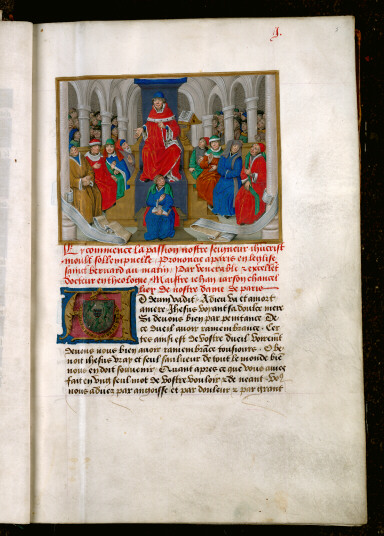 j.
Cy commence la passion nostre seigneur ihucrist
moult sollempnelle. Prononcee a paris en leglise
saint bernard au matin. Par venerable et excellet
docteur en theologie Maistre iehan iarson chancel
lier de nostre dame de paris
D deum vadit. A dieu va et a mort
amere Ihesus voyant sa doulce mere
Si deuons bien par penitance De
ce dueil auoir ramembrance. Cer
tes ainsi est De vostre dueil voirent
deuons nous bien auoir ramembrāce tousiours. O be
noit ihesus vray et seul saulueur de tout le monde bie
nous en doit souuenir. Quant apres ce que vous auiez
fait en vng seul mot de vostre vouloir et de neant. Vo9
nous aduez par angoisse et par douleur et par grant